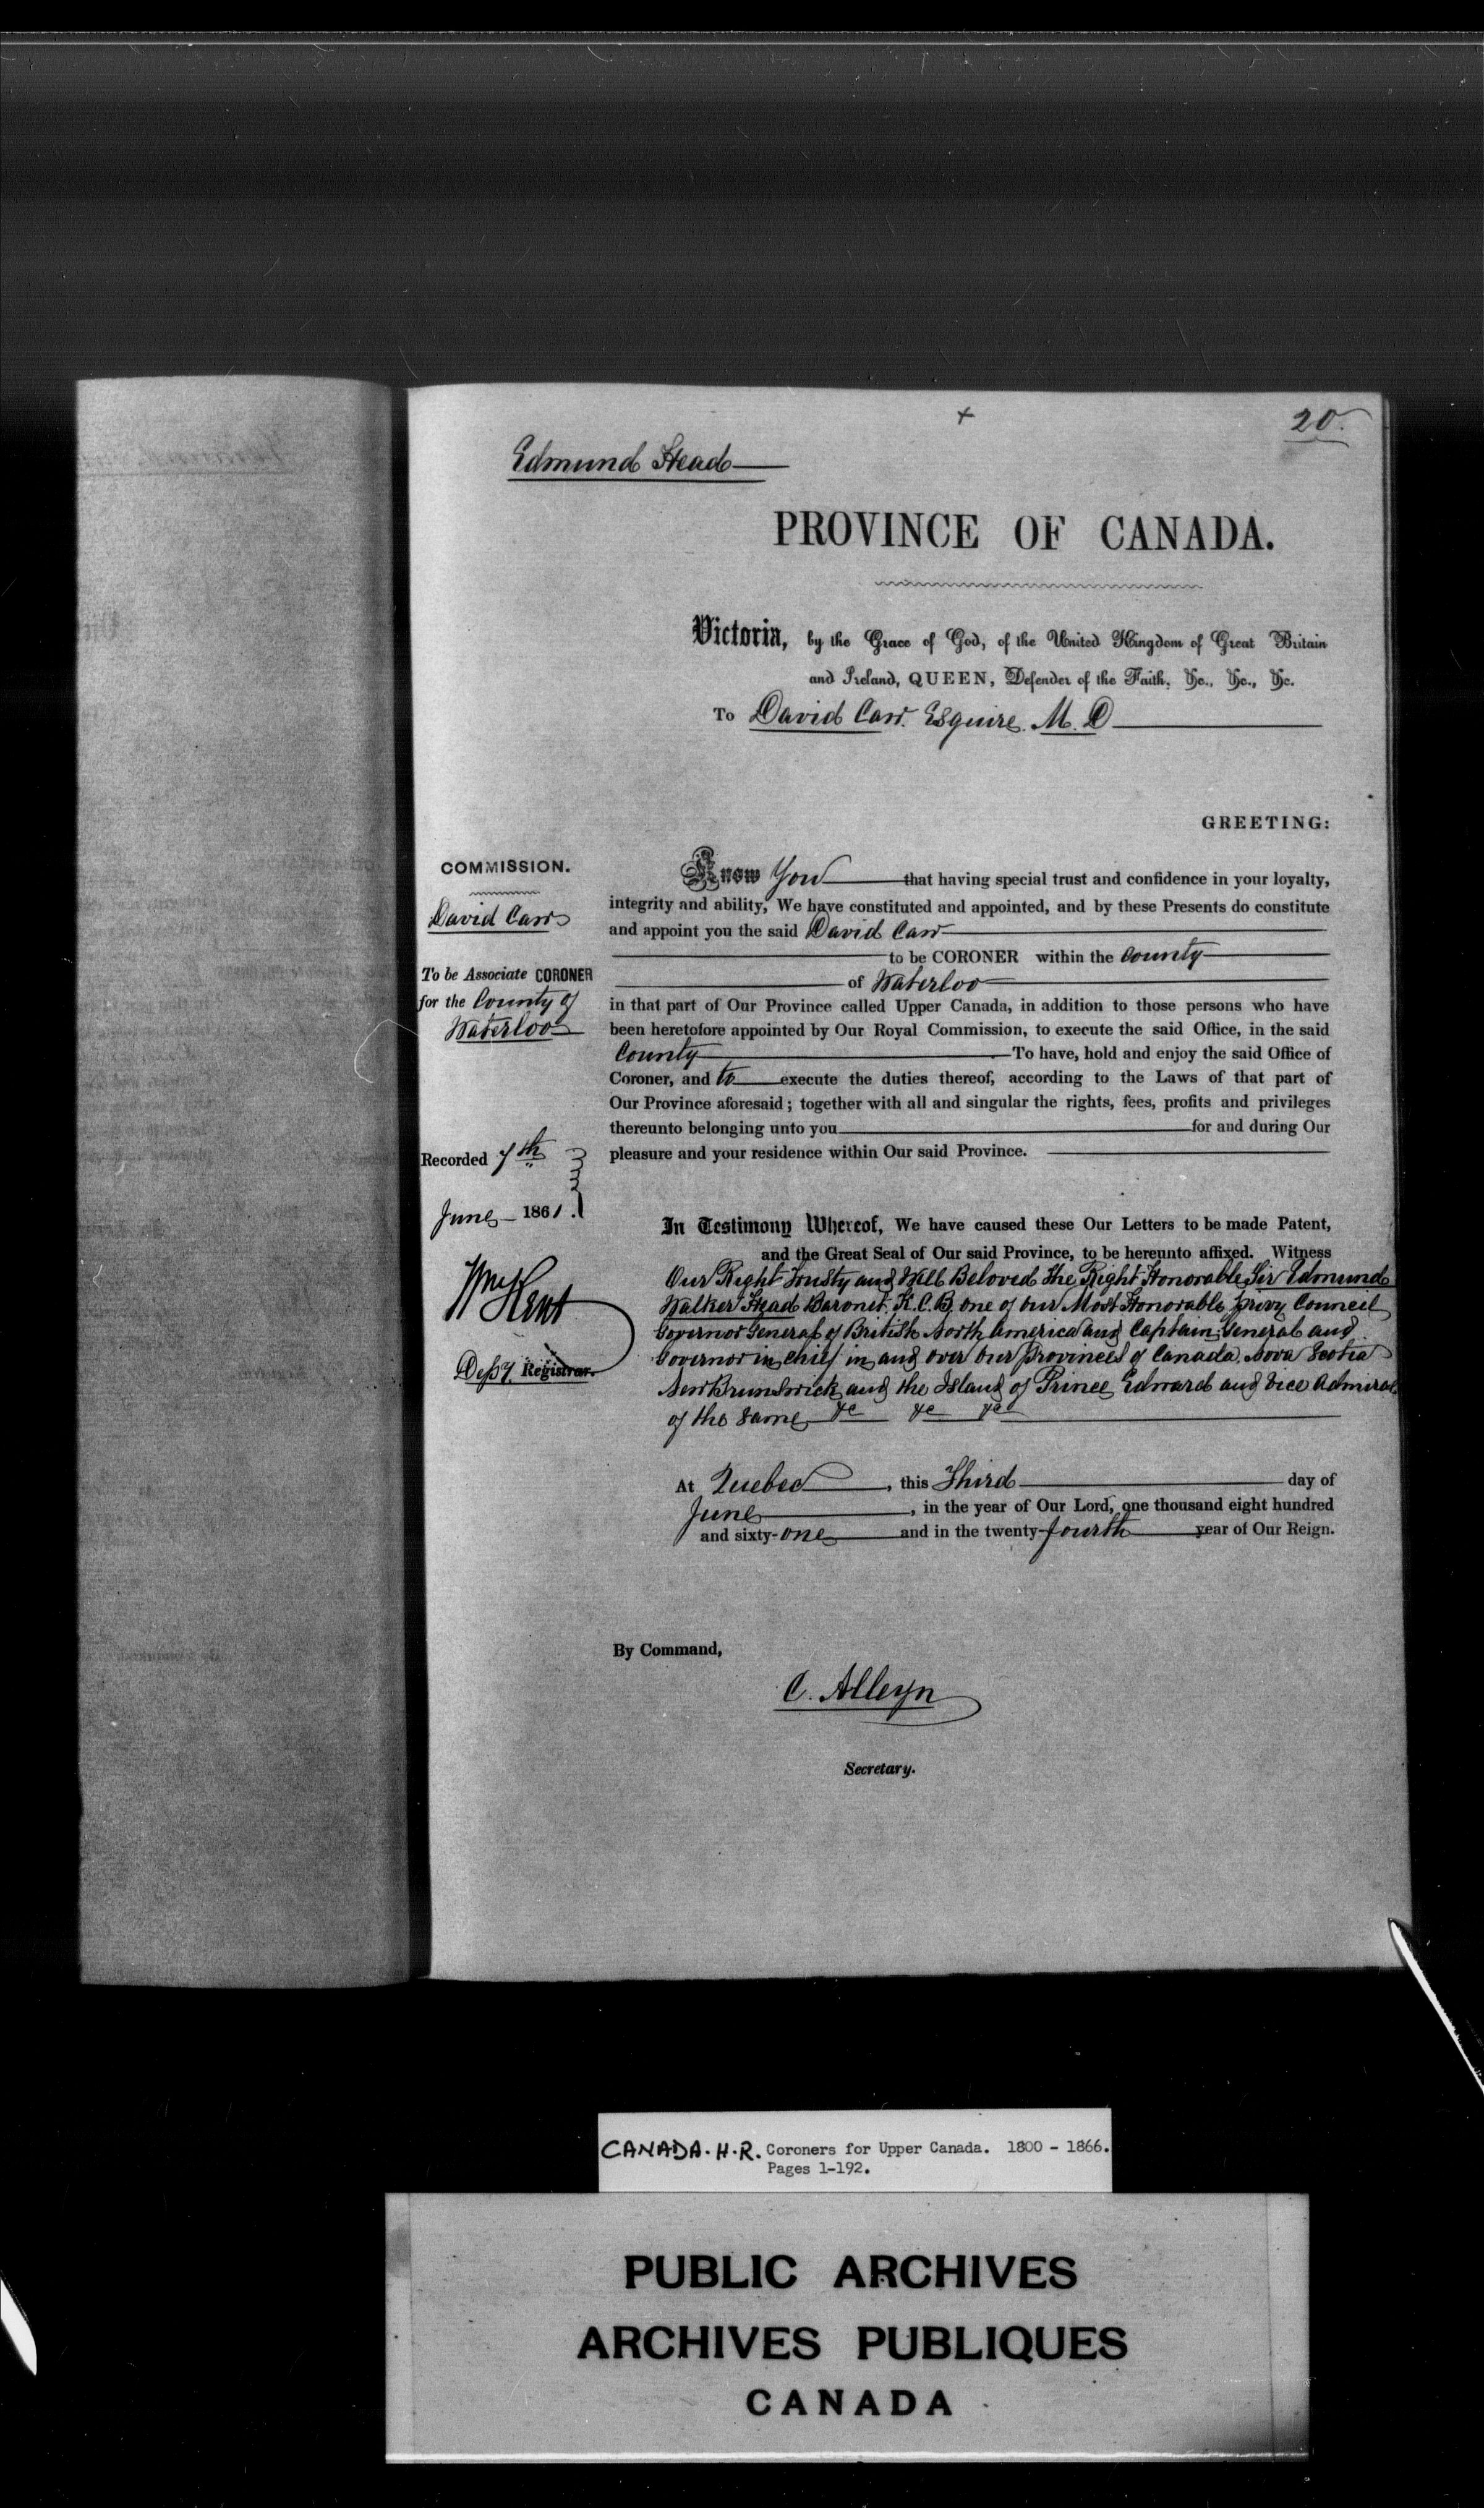 +
20.
Edmund Head
PROVINCE OF CANADA.
Victoria, by the Grace of God, of the United Kingdom of Great Britain
and Ireland, QUEEN, Defender of the Faith, &c., &c., &c.
To David Carr. Esquire. M. D
GREETING:
COMMISSION.
David Carr
To be Associate CORONER
for the County of
Waterloo
Recorded 7th
June 1861.
Wm Kent
Depy. Registrar.
Know You that having special trust and confidence in your loyalty,
integrity and ability, We have constituted and appointed, and by these Presents do constitute
and appoint you the said David Carr
to be CORONER within the County
of Waterloo
in that part of Our Province called Upper Canada, in addition to those persons who have
been heretofore appointed by Our Royal Commission, to execute the said Office, in the said
County To have, hold and enjoy the said Office of
Coroner, and to execute the duties thereof, according to the Laws of that part of
Our Province aforesaid; together with all and singular the rights, fees, profits and privileges
thereunto belonging unto you for and during Our
pleasure and your residence within Our said Province.
In Testimony Whereof, We have caused these Our Letters to be made Patent,
and the Great Seal of Our said Province, to be hereunto affixed. Witness
Our Right Trusty and Well Beloved The Right Honorable Sir Edmund
Walker Head Baronet. K.C.B. one of our Most Honorable privy Council
Governor General of British North America and Captain General and
Governor in chief in and over Our provinces of Canada, Nova Scotia
New Brunswick and the Island of Prince Edward and Vice Admiral
of the same &c &c &c
At Quebec, this Third day of
June, in the year of Our Lord, one thousand eight hundred
and sixty-one and in the twenty-fourth year of Our Reign.
By Command,
C. Alleyn
Secretary.
CANADA. H.R. Coroners for Upper Canada. 1800 - 1866.
Pages 1-192.
PUBLIC ARCHIVES
ARCHIVES PUBLIQUES
CANADA